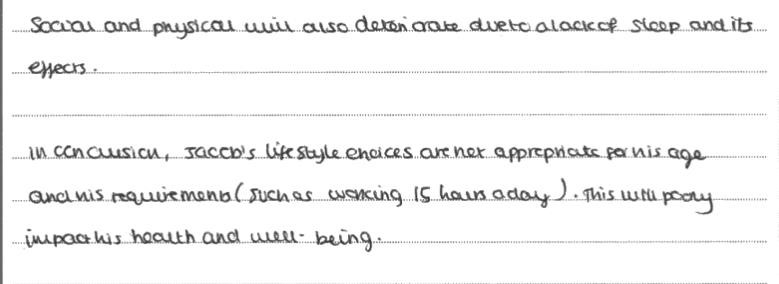 Social and physical will also deteriorate due to a lack of sleep and its
effects.
In conclusion, Jacob's lifestyle choices are not appropriate for his age
and his requirements (such as working 15 hours a day). This will poorly
impact his health and well-being.